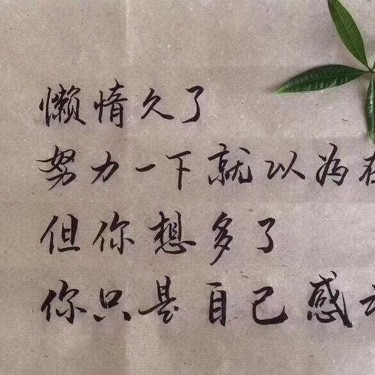 懒惰久了
努力一下就以为
但你想多了
你只是自己感